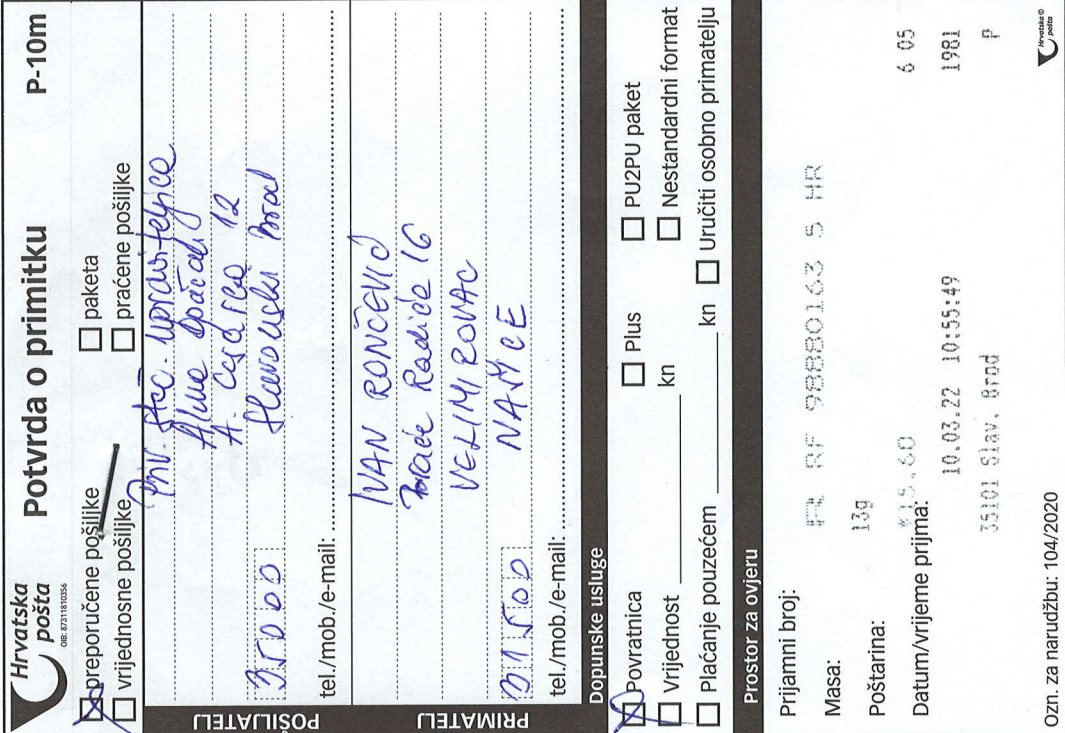 Hrvatska pošta
OIB: 87311810356
Potvrda o primitku
P-10m
preporučene pošiljke
paketa
vrijednosne pošiljke
praćene pošiljke
POŠILJATELJ
Priv. upraviteljica
A. Cesarca 12
35000 Slavonski Brod
tel./mob./e-mail:
PRIMATELJ
IVAN RONČEVIĆ
Braće Radića 16
VELIMIROVAC
31500 NAŠICE
tel./mob./e-mail:
Dopunske usluge
Povratnica
Plus
PU2PU paket
Vrijednost kn
Nestandardni format
Plaćanje pouzećem kn
Uručiti osobno primatelju
Prostor za ovjeru
Prijamni broj: R RF 98880163 5 HR
Masa: 13g
Poštarina: *15,60
6 05
Datum/vrijeme prijma: 10.03.22 10:55:49
1981
35101 Slav. Brod
P
Ozn. za narudžbu: 104/2020
Hrvatska pošta